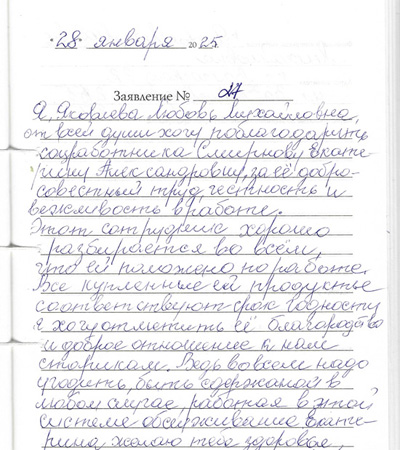 "28" января 2025
Заявление № 27
Я, Яковлева Любовь Михайловна,
от всей души хочу поблагодарить
соцработника Смирнову Екате-
рину Александровну, за её добро-
совестный труд, честность и
вежливость в работе.
Этот сотрудник хорошо
разбирается во всём,
что ей положено по работе.
Все купленные ей продукты
соответствуют срок годности
Я хочу отметить её благородство
и доброе отношение к нам
старикам. Ведь во всем надо
угодить, быть сдержаной в
любом случае, работая в этой
системе обслуживание Екате-
рина желаю тебе здоровье,